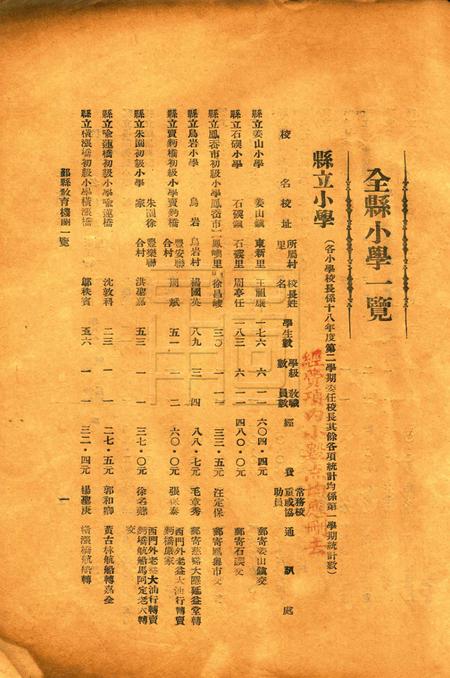 全縣小學一覽
縣立小學（各小學校長係十八年度第二學期委任校長其餘各項統計均係第一學期統計數）
經費項內小數點均應刪去
校名 校址 所屬村里 校長姓名 學生數 學級數 教職員數 經費 常務校董或協助員 通訊處
縣立姜山小學 姜山鎮 東新里 王 康 一七六 六 一二 六〇四·四元 郵寄姜山鎮交
縣立石碶小學 石碶鎮 石碶里 周 任 一八三 六 一一 四八〇·〇元 郵寄石碶交
縣立鳳嶴市初級小學 鳳嶴市 鳳嶴里 徐昌 三〇 一 二 三三·五元 汪定保 郵寄鳳嶴市交
縣立烏岩小學 烏岩 烏岩村 楊國英 八九 三 四 八八·七元 毛章秀 郵寄慈谿大隱延益堂轉
縣立賣麪橋初級小學 賣麪橋 豐安聯合村 斌 五一 一 二 六〇·〇元 張 泰 西門外老 大油行轉賣麪橋嚴家
縣立朱園初級小學 朱園徐家 豐樂聯合村 洪 嘉 五三 一 一 三七·〇元 徐名 西門外老 大油行轉賣麪橋航船馬阿定老大轉交
縣立喻蓮橋初級小學 喻蓮橋 沈敦科 二三 一 一 二七·五元 郭和卿 黃古林航船轉嘉
縣立橫漲橋初級小學 橫漲橋 鄔秩賓 五六 一 一 三二·四元 楊 庚 橫漲橋航船轉
鄞縣教育機關一覽
一